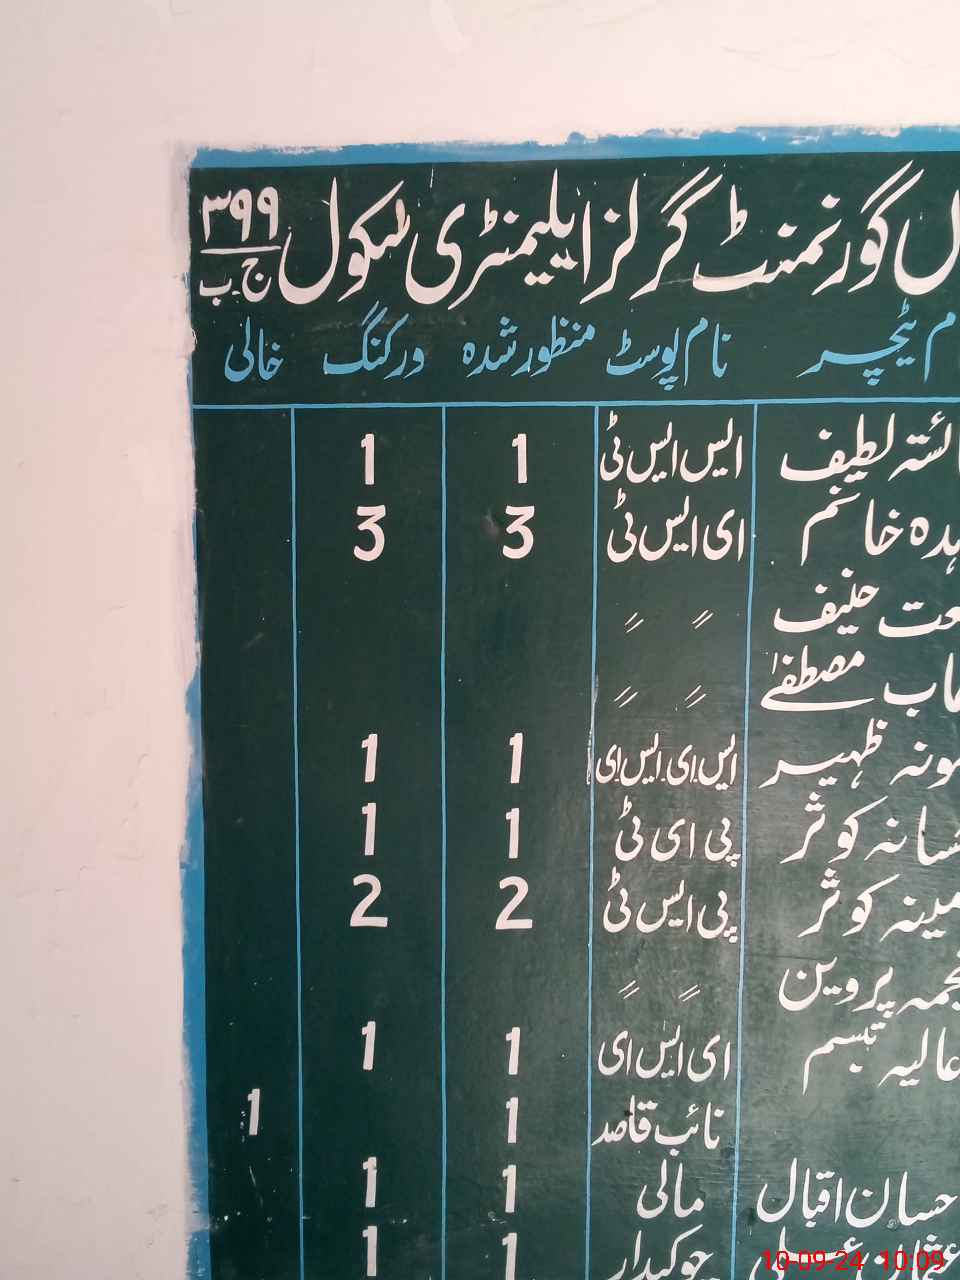 گورنمنٹ گرلز ایلیمنٹری سکول ۳۹۹ ج۔ب
ٹیچر نام پوسٹ منظور شدہ ورکنگ خالی
لطیف ایس ایس ٹی 1 1
خانم ای ایس ٹی 3 3
حنیف 〃 〃
مصطفےٰ 〃 〃
ظہیر ایس۔ای۔ایس۔ای 1 1
کوثر پی ای ٹی 1 1
کوثر پی ایس ٹی 2 2
پروین 〃 〃
عالیہ تبسم ای ایس ای 1 1
نائب قاصد 1 1
حسان اقبال مالی 1 1
چوکیدار 1 1
10-09-24 10:09